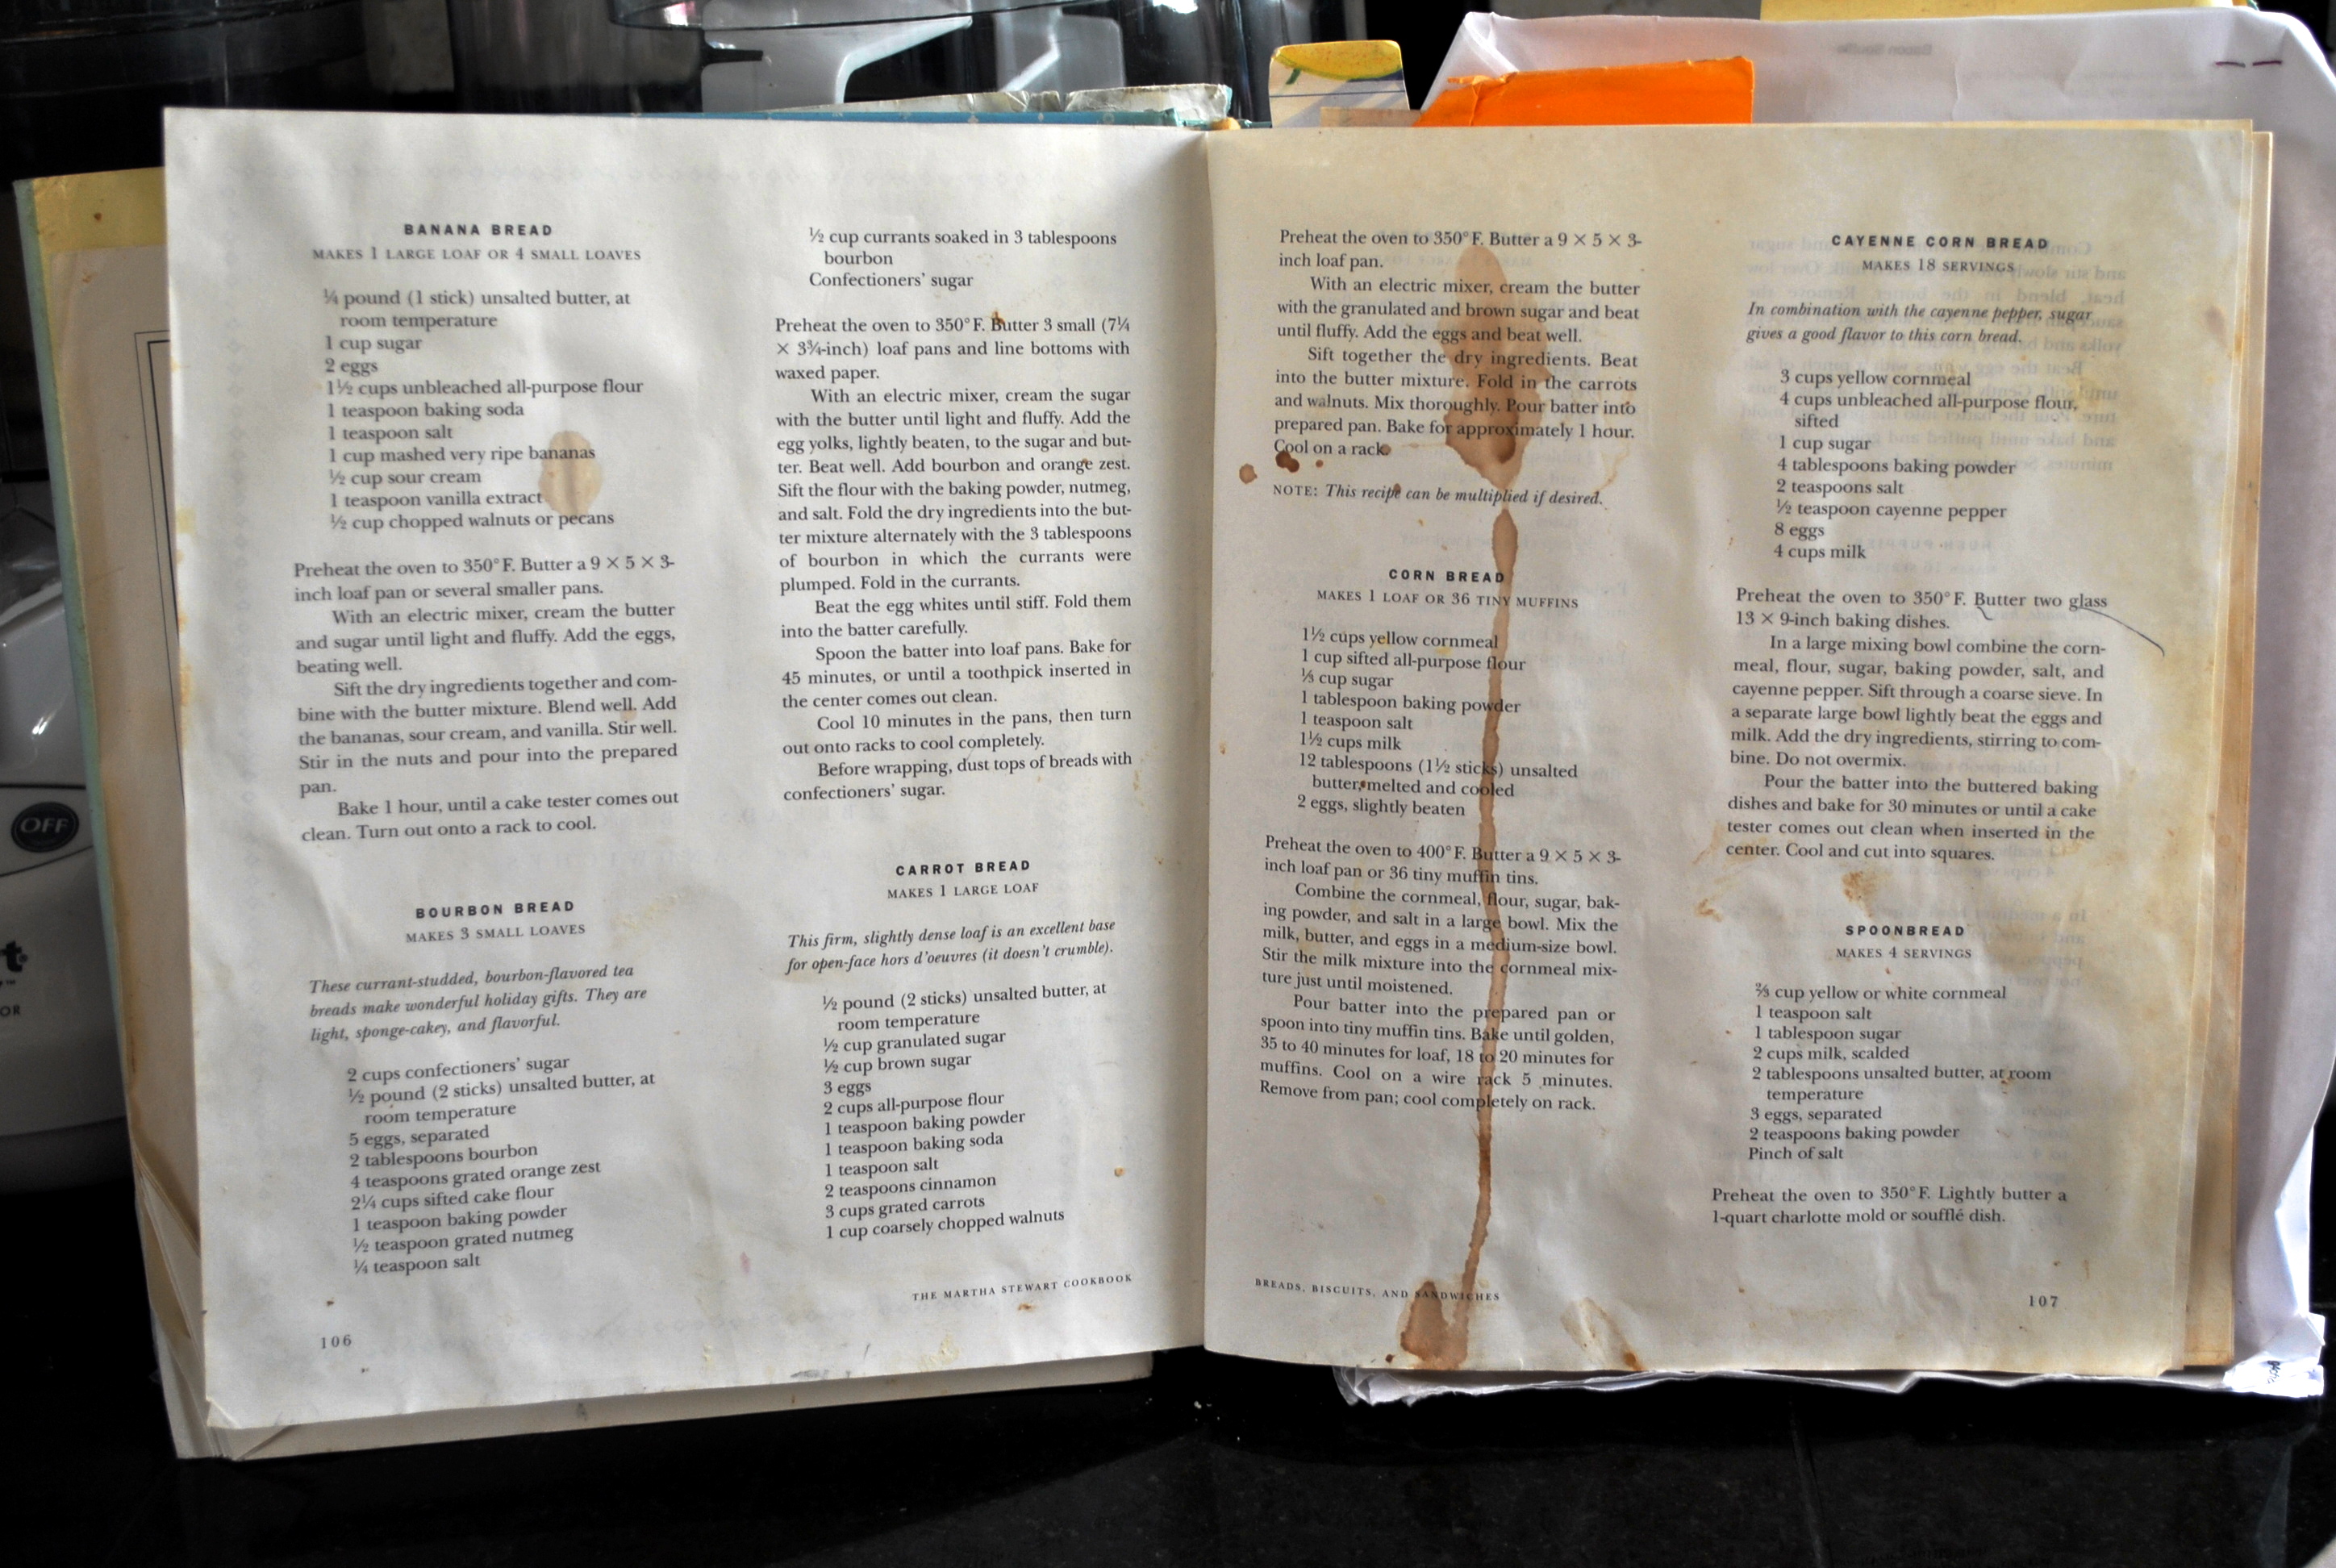 BANANA BREAD
MAKES 1 LARGE LOAF OR 4 SMALL LOAVES
¼ pound (1 stick) unsalted butter, at
room temperature
1 cup sugar
2 eggs
1½ cups unbleached all-purpose flour
1 teaspoon baking soda
1 teaspoon salt
1 cup mashed very ripe bananas
½ cup sour cream
1 teaspoon vanilla extract
½ cup chopped walnuts or pecans
Preheat the oven to 350° F. Butter a 9 × 5 × 3-
inch loaf pan or several smaller pans.
With an electric mixer, cream the butter
and sugar until light and fluffy. Add the eggs,
beating well.
Sift the dry ingredients together and com-
bine with the butter mixture. Blend well. Add
the bananas, sour cream, and vanilla. Stir well.
Stir in the nuts and pour into the prepared
pan.
Bake 1 hour, until a cake tester comes out
clean. Turn out onto a rack to cool.
BOURBON BREAD
MAKES 3 SMALL LOAVES
These currant-studded, bourbon-flavored tea
breads make wonderful holiday gifts. They are
light, sponge-cakey, and flavorful.
2 cups confectioners' sugar
½ pound (2 sticks) unsalted butter, at
room temperature
5 eggs, separated
2 tablespoons bourbon
4 teaspoons grated orange zest
2¼ cups sifted cake flour
1 teaspoon baking powder
½ teaspoon grated nutmeg
¼ teaspoon salt
106
½ cup currants soaked in 3 tablespoons
bourbon
Confectioners' sugar
Preheat the oven to 350° F. Butter 3 small (7¼
× 3¾-inch) loaf pans and line bottoms with
waxed paper.
With an electric mixer, cream the sugar
with the butter until light and fluffy. Add the
egg yolks, lightly beaten, to the sugar and but-
ter. Beat well. Add bourbon and orange zest.
Sift the flour with the baking powder, nutmeg,
and salt. Fold the dry ingredients into the but-
ter mixture alternately with the 3 tablespoons
of bourbon in which the currants were
plumped. Fold in the currants.
Beat the egg whites until stiff. Fold them
into the batter carefully.
Spoon the batter into loaf pans. Bake for
45 minutes, or until a toothpick inserted in
the center comes out clean.
Cool 10 minutes in the pans, then turn
out onto racks to cool completely.
Before wrapping, dust tops of breads with
confectioners' sugar.
CARROT BREAD
MAKES 1 LARGE LOAF
This firm, slightly dense loaf is an excellent base
for open-face hors d'oeuvres (it doesn't crumble).
½ pound (2 sticks) unsalted butter, at
room temperature
½ cup granulated sugar
½ cup brown sugar
3 eggs
2 cups all-purpose flour
1 teaspoon baking powder
1 teaspoon baking soda
1 teaspoon salt
2 teaspoons cinnamon
3 cups grated carrots
1 cup coarsely chopped walnuts
THE MARTHA STEWART COOKBOOK
Preheat the oven to 350° F. Butter a 9 × 5 × 3-
inch loaf pan.
With an electric mixer, cream the butter
with the granulated and brown sugar and beat
until fluffy. Add the eggs and beat well.
Sift together the dry ingredients. Beat
into the butter mixture. Fold in the carrots
and walnuts. Mix thoroughly. Pour batter into
prepared pan. Bake for approximately 1 hour.
Cool on a rack.
NOTE: This recipe can be multiplied if desired.
CORN BREAD
MAKES 1 LOAF OR 36 TINY MUFFINS
1½ cups yellow cornmeal
1 cup sifted all-purpose flour
⅓ cup sugar
1 tablespoon baking powder
1 teaspoon salt
1½ cups milk
12 tablespoons (1½ sticks) unsalted
butter, melted and cooled
2 eggs, slightly beaten
Preheat the oven to 400° F. Butter a 9 × 5 × 3-
inch loaf pan or 36 tiny muffin tins.
Combine the cornmeal, flour, sugar, bak-
ing powder, and salt in a large bowl. Mix the
milk, butter, and eggs in a medium-size bowl.
Stir the milk mixture into the cornmeal mix-
ture just until moistened.
Pour batter into the prepared pan or
spoon into tiny muffin tins. Bake until golden,
35 to 40 minutes for loaf, 18 to 20 minutes for
muffins. Cool on a wire rack 5 minutes.
Remove from pan; cool completely on rack.
BREADS, BISCUITS, AND SANDWICHES
CAYENNE CORN BREAD
MAKES 18 SERVINGS
In combination with the cayenne pepper, sugar
gives a good flavor to this corn bread.
3 cups yellow cornmeal
4 cups unbleached all-purpose flour,
sifted
1 cup sugar
4 tablespoons baking powder
2 teaspoons salt
½ teaspoon cayenne pepper
8 eggs
4 cups milk
Preheat the oven to 350° F. Butter two glass
13 × 9-inch baking dishes.
In a large mixing bowl combine the corn-
meal, flour, sugar, baking powder, salt, and
cayenne pepper. Sift through a coarse sieve. In
a separate large bowl lightly beat the eggs and
milk. Add the dry ingredients, stirring to com-
bine. Do not overmix.
Pour the batter into the buttered baking
dishes and bake for 30 minutes or until a cake
tester comes out clean when inserted in the
center. Cool and cut into squares.
SPOONBREAD
MAKES 4 SERVINGS
⅔ cup yellow or white cornmeal
1 teaspoon salt
1 tablespoon sugar
2 cups milk, scalded
2 tablespoons unsalted butter, at room
temperature
3 eggs, separated
2 teaspoons baking powder
Pinch of salt
Preheat the oven to 350° F. Lightly butter a
1-quart charlotte mold or soufflé dish.
107
OFF